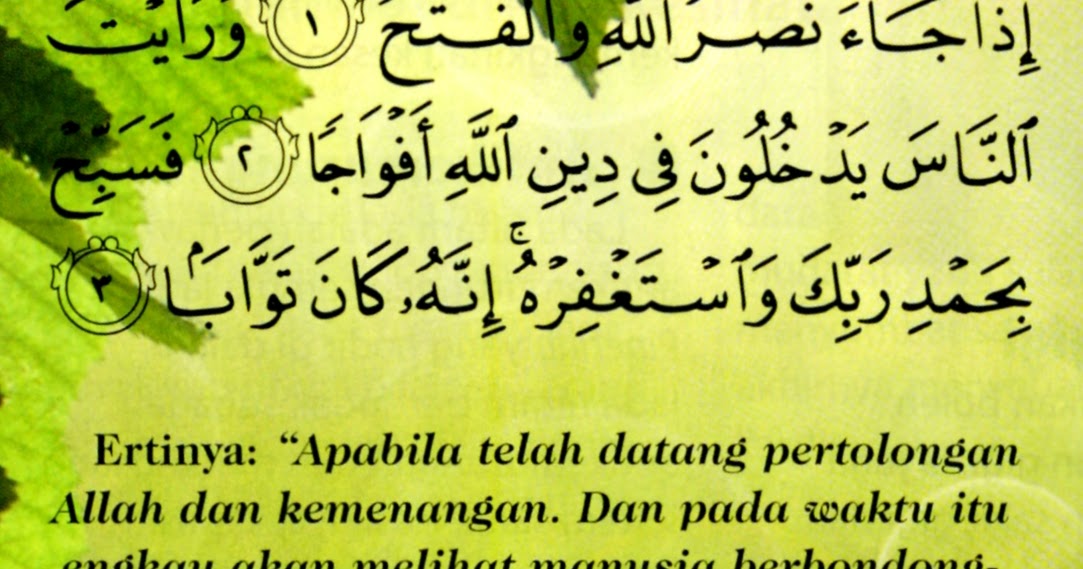 إِذَا جَاءَ نَصْرُ اللَّهِ وَالْفَتْحُ ١ وَرَأَيْتَ
ٱلنَّاسَ يَدْخُلُونَ فِى دِينِ ٱللَّهِ أَفْوَاجًا ٢ فَسَبِّحْ
بِحَمْدِ رَبِّكَ وَٱسْتَغْفِرْهُ ۚ إِنَّهُۥ كَانَ تَوَّابًۢا ٣
Ertinya: “Apabila telah datang pertolongan
Allah dan kemenangan. Dan pada waktu itu
engkau akan melihat manusia berbondong-